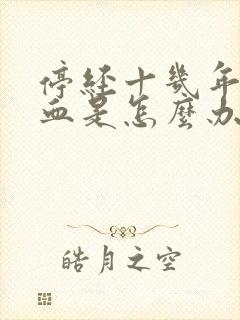 停经十幾年
血是怎麼办
皓月之空